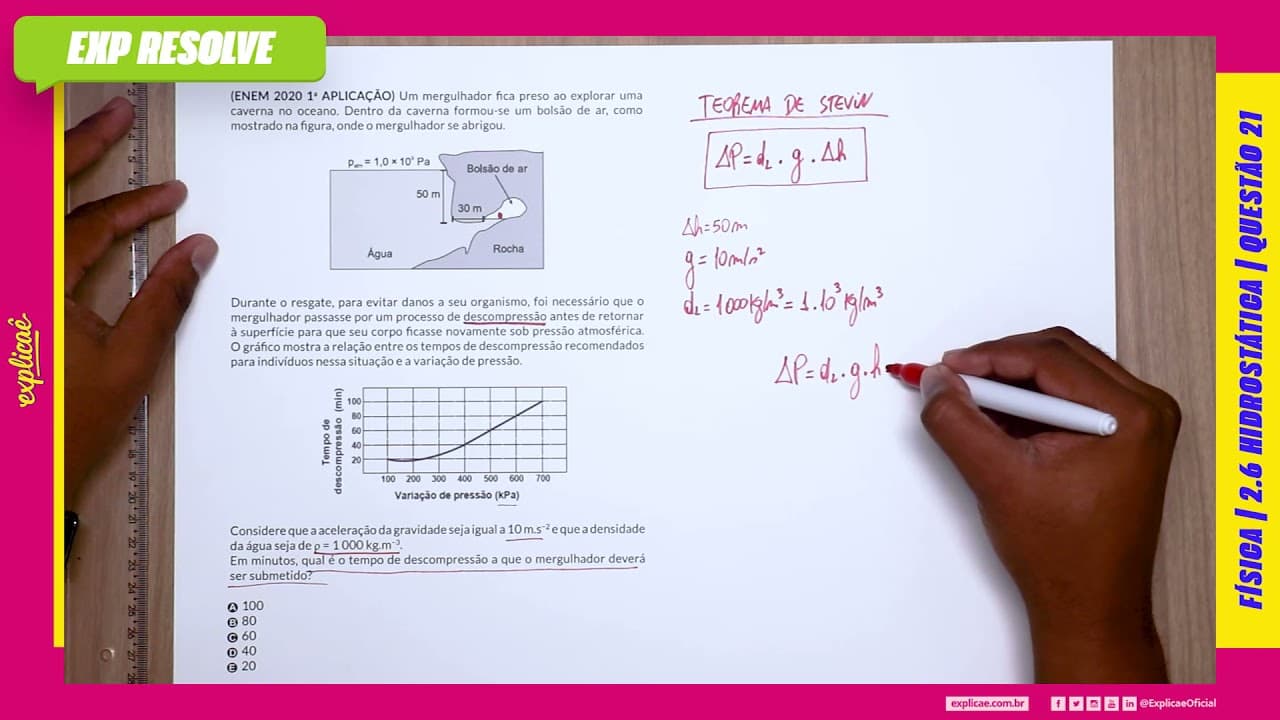 EXP RESOLVE
(ENEM 2020 1ª APLICAÇÃO) Um mergulhador fica preso ao explorar uma
caverna no oceano. Dentro da caverna formou-se um bolsão de ar, como
mostrado na figura, onde o mergulhador se abrigou.
Pₐₜₘ = 1,0 × 10⁵ Pa
Bolsão de ar
50 m
30 m
Água
Rocha
Durante o resgate, para evitar danos a seu organismo, foi necessário que o
mergulhador passasse por um processo de descompressão antes de retornar
à superfície para que seu corpo ficasse novamente sob pressão atmosférica.
O gráfico mostra a relação entre os tempos de descompressão recomendados
para indivíduos nessa situação e a variação de pressão.
Tempo de
descompressão (min)
100
80
60
40
20
100 200 300 400 500 600 700
Variação de pressão (kPa)
Considere que a aceleração da gravidade seja igual a 10 m.s⁻² e que a densidade
da água seja de ρ = 1 000 kg.m⁻³.
Em minutos, qual é o tempo de descompressão a que o mergulhador deverá
ser submetido?
A 100
B 80
C 60
D 40
E 20
TEOREMA DE STEVIN
ΔP = d_L . g . Δh
Δh = 50m
g = 10m/s²
d_L = 1000kg/m³ = 1.10³ kg/m³
ΔP = d_L . g . h
explicaê
FÍSICA | 2.6 HIDROSTÁTICA | QUESTÃO 21
explicae.com.br
@ExplicaeOficial